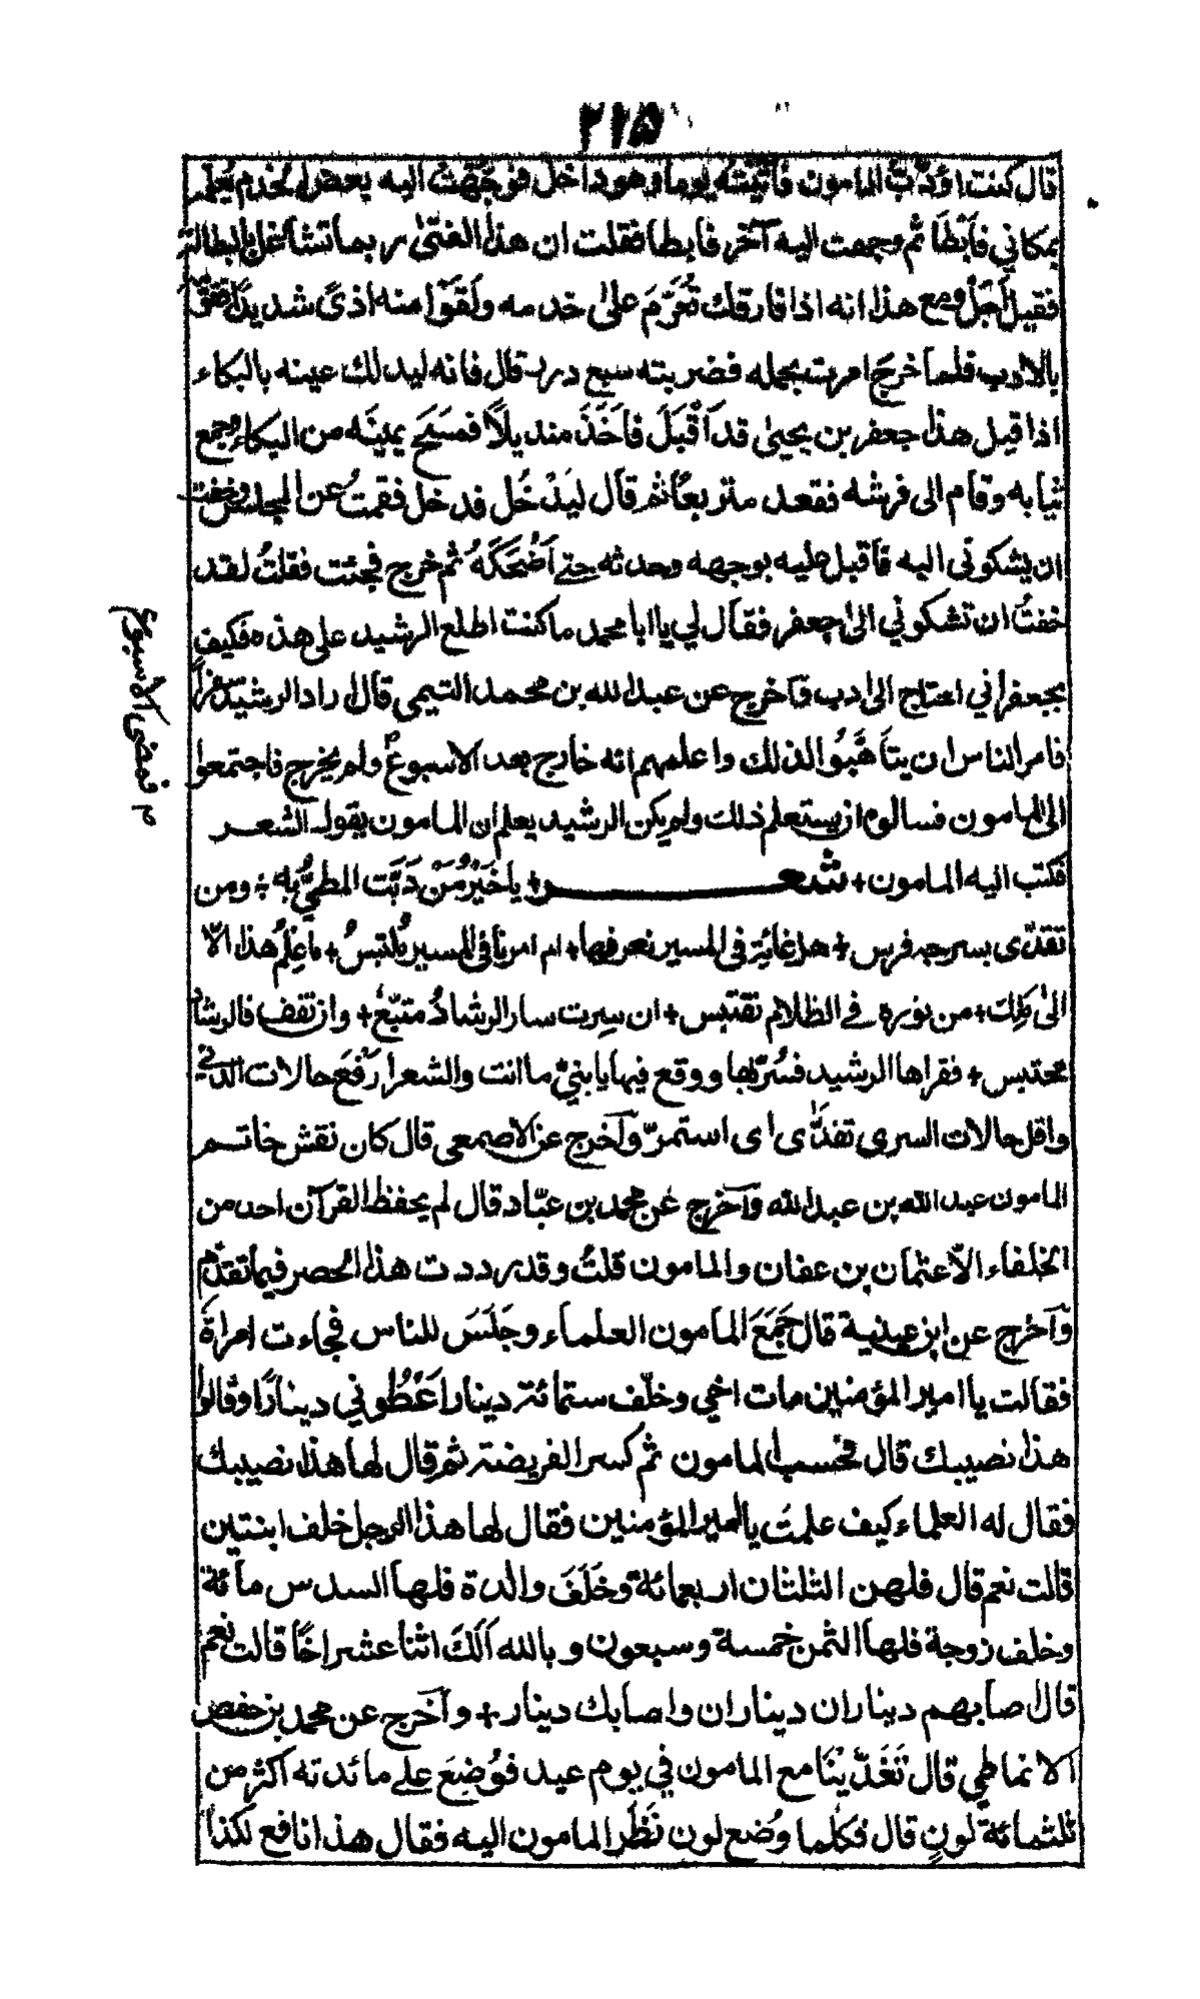 ۲۱۵
قال كنت اؤدّب المامون فأتيته يوما وهو داخل فوجّهت اليه بعض الخدم يعلمه
بمكاني فأبطأ ثم وجهت اليه آخر فابطا فقلت ان هذا الفتىٰ ربما تشاغل بالبطالة
فقيل أجل ومع هذا انه اذا فارقك تعرّم علىٰ خدمه ولقوا منه اذىً شديدًا فقوّمه
بالادب فلما خرج امرت بحمله فضربته سبع درر قال فانه ليدلك عينه بالبكاء
اذا قيل هذا جعفر بن يحيىٰ قد أقبل فأخذ منديلًا فمسح عينيه من البكاء وجمع
ثيابه وقام الى فرشه فقعد متربعًا ثم قال ليدخل فدخل فقمت عن المجلس وخفت
ان يشكوني اليه فأقبل عليه بوجهه وحدثه حتى أضحكه ثم خرج فجئت فقلت لقد
خفت ان تشكوني الىٰ جعفر فقال لي يا ابا محمد ما كنت اطلع الرشيد على هذه فكيف
بجعفر اني احتاج الى ادب وآخرج عن عبد الله بن محمد التيمي قال اراد الرشيد سفرًا
فامر الناس ان يتأهّبوا لذلك واعلمهم انه خارج بعد الاسبوع ولم يخرج فاجتمعوا
م فمضى الاسبوع
الى المامون فسالوه ان يستعلم ذلك ولم يكن الرشيد يعلم ان المامون يقول الشعر
فكتب اليه المامون + شعر + يا خير من دبّت المطيّ به ؛ ومن
تقدّى بسرجه فرس + هل غاية في المسير نعرفها + ام امرنا في المسير ملتبس + ما علم هذا الّا
الىٰ ملك + من نوره في الظلام نقتبس + ان سرت سار الرشاد متبّعا + وان تقف فالرشاد
محتبس + فقراها الرشيد فسُرّ بها ووقع فيها يا بنيّ ما انت والشعر ارفع حالات الدني
واقل حالات السري تقدّى اى استمرّ وآخرج عن الاصمعي قال كان نقش خاتم
المامون عبد الله بن عبد الله وآخرج عن محمد بن عبّاد قال لم يحفظ القرآن احد من
الخلفاء الّا عثمان بن عفان والمامون قلتُ وقد رددت هذا الحصر فيما تقدّم
وآخرج عن ابن عيينة قال جمع المامون العلماء وجلس للناس فجاءت امراة
فقالت يا امير المؤمنين مات اخي وخلّف ستمائة دينار اعطوني دينارًا وقالوا
هذا نصيبك قال فحسب المامون ثم كسر الفريضة ثم قال لها هذا نصيبك
فقال له العلماء كيف علمت يا امير المؤمنين فقال لها هذا الرجل خلف ابنتين
قالت نعم قال فلهن الثلثان اربعمائة وخلف والدة فلها السدس مائة
وخلف زوجة فلها الثمن خمسة وسبعون وبالله ألك اثنا عشر اخًا قالت نعم
قال صابهم ديناران ديناران واصابك دينار + وآخرج عن محمد بن حفص
الانماطي قال تغدّينا مع المامون في يوم عيد فوضع على مائدته اكثر من
ثلثمائة لون قال فكلما وضع لون نظر المامون اليه فقال هذا نافع لكذا